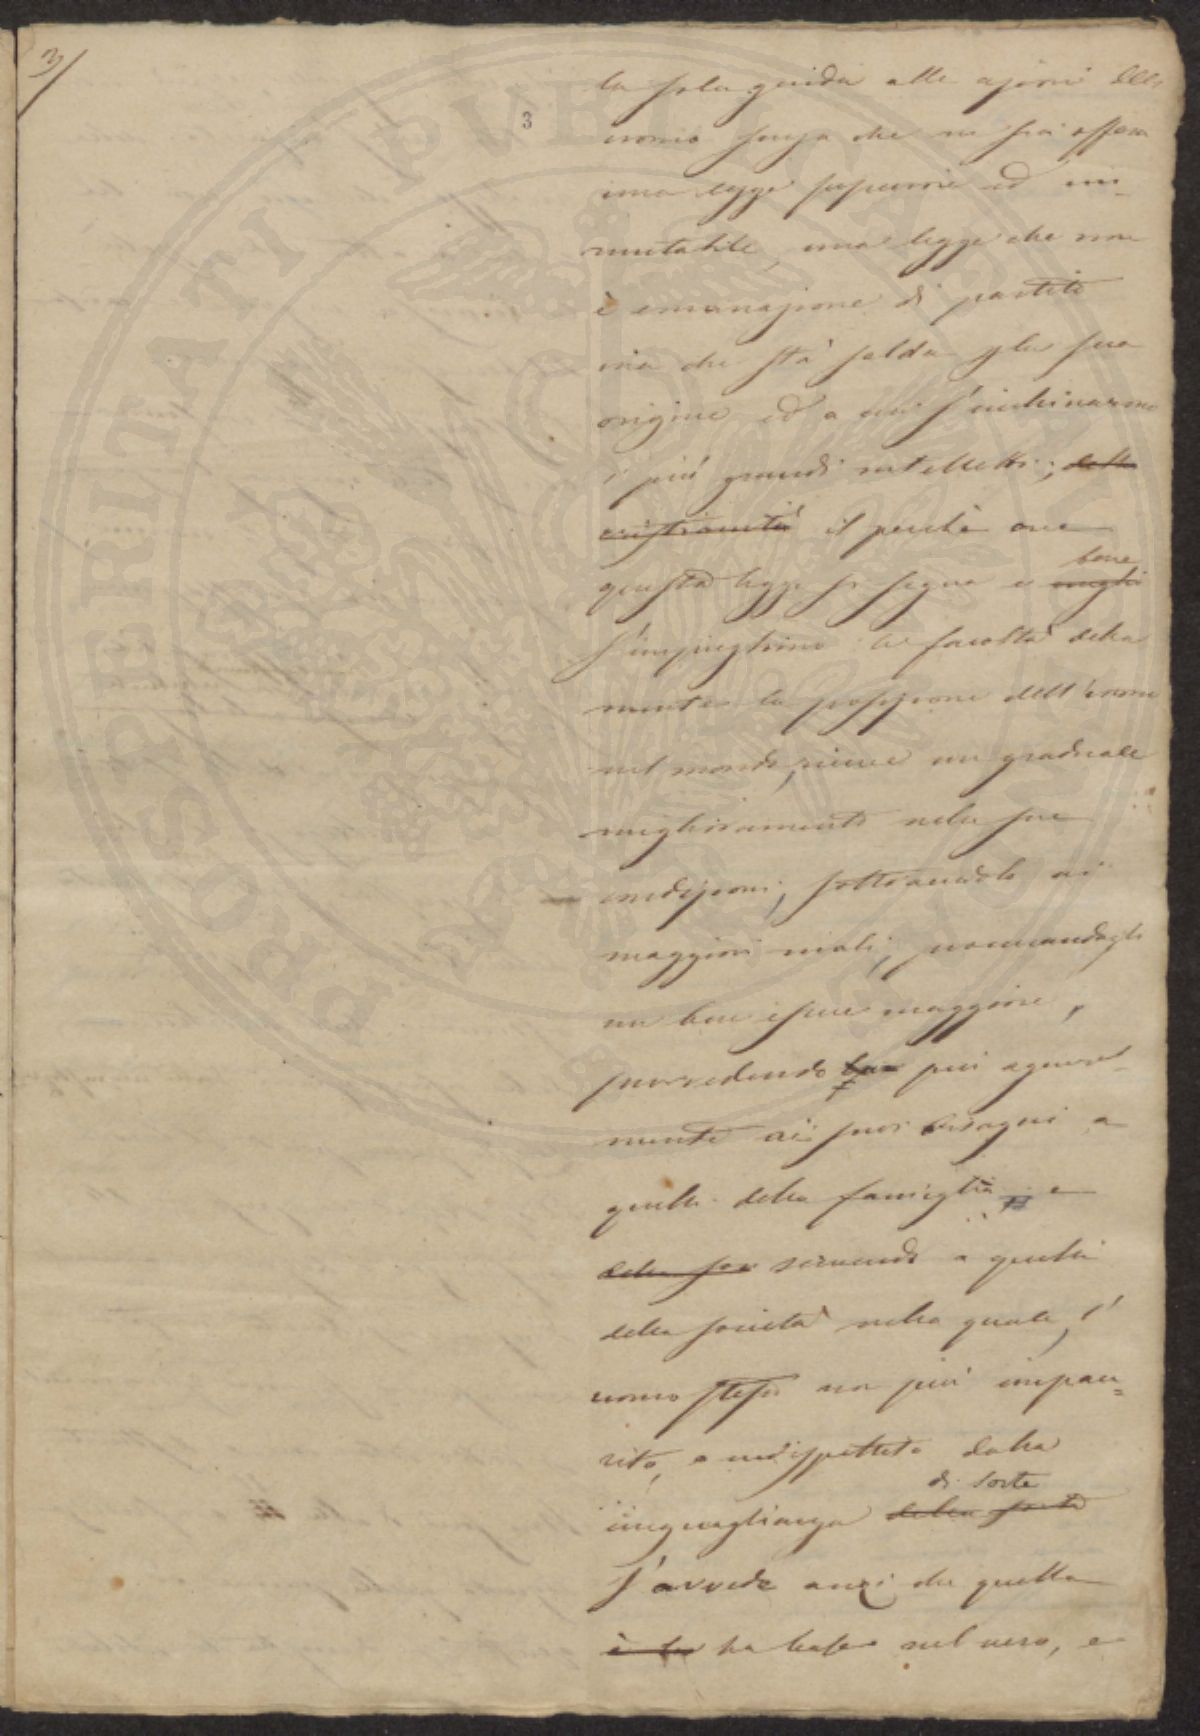 3/
3
la sola guida alle azioni dell'
uomo senza che vi sia offesa
una legge superiore ed im-
mutabile, una legge che non
è emanazione di partito
ma che stà salda p la sua
origine ed a cui s'inchinarono
i più grandi intelletti; della
cristianità il perchè ove
questa legge si segua e bene
meglio
s'impieghino le facoltà della
mente la posizione dell'uomo
nel mondo, riceve un graduale
miglioramento nelle sue
condizioni, sottraendolo ai
maggiori mali, procurandogli
un bene maggiore,
provvedendo più
mente ai suoi bisogni a
quelli della famiglia e
della servendo a quelli
della società nella quale, l'
uomo stesso non più impau=
rito, o indispettito dalla
di sorte
inuguaglianza della sorte
s'avvede anzi che quella
è ha base nel vero, e
PROSPERITATI PVBLICAE